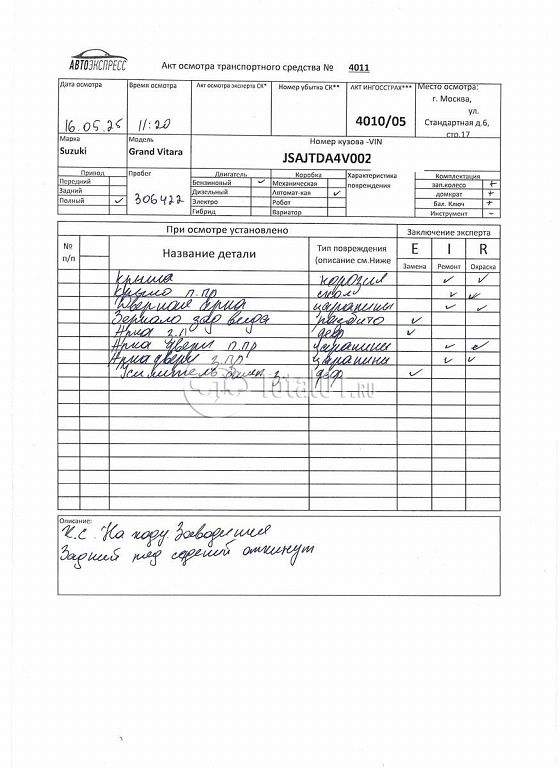 АВТОЭКСПРЕСС
Акт осмотра транспортного средства № 4011
Дата осмотра Время осмотра Акт осмотра эксперта СК* Номер убытка СК** АКТ ИНГОССТРАХ*** Место осмотра:
16.05.25 11:20 4010/05 г. Москва, ул. Стандартная д.6, стр.17
Марка Модель Номер кузова -VIN
Suzuki Grand Vitara JSAJTDA4V002
Привод Пробег Двигатель Коробка Характеристика повреждения Комплектация
Передний 306422 Бензиновый ✓ Механическая зап.колесо +
Задний Дизельный Автомат-кая ✓ домкрат +
Полный ✓ Электро Робот бал. Ключ +
Гибрид Вариатор Инструмент -
При осмотре установлено Заключение эксперта
№ п/п Название детали Тип повреждения (описание см.Ниже E I R
Замена Ремонт Окраска
Крыша коррозия ✓ ✓
Крыло п.пр ✓ ✓
царапины ✓ ✓
Зеркало зад вида ✓
Арка деф ✓
Арка двери п.пр царапины ✓ ✓
Арка двери з.пр царапины ✓ ✓
Усилитель з. деф ✓
Total01.RU
Описание:
К.С. На ходу. Заводится
Задний ряд сидений откинут